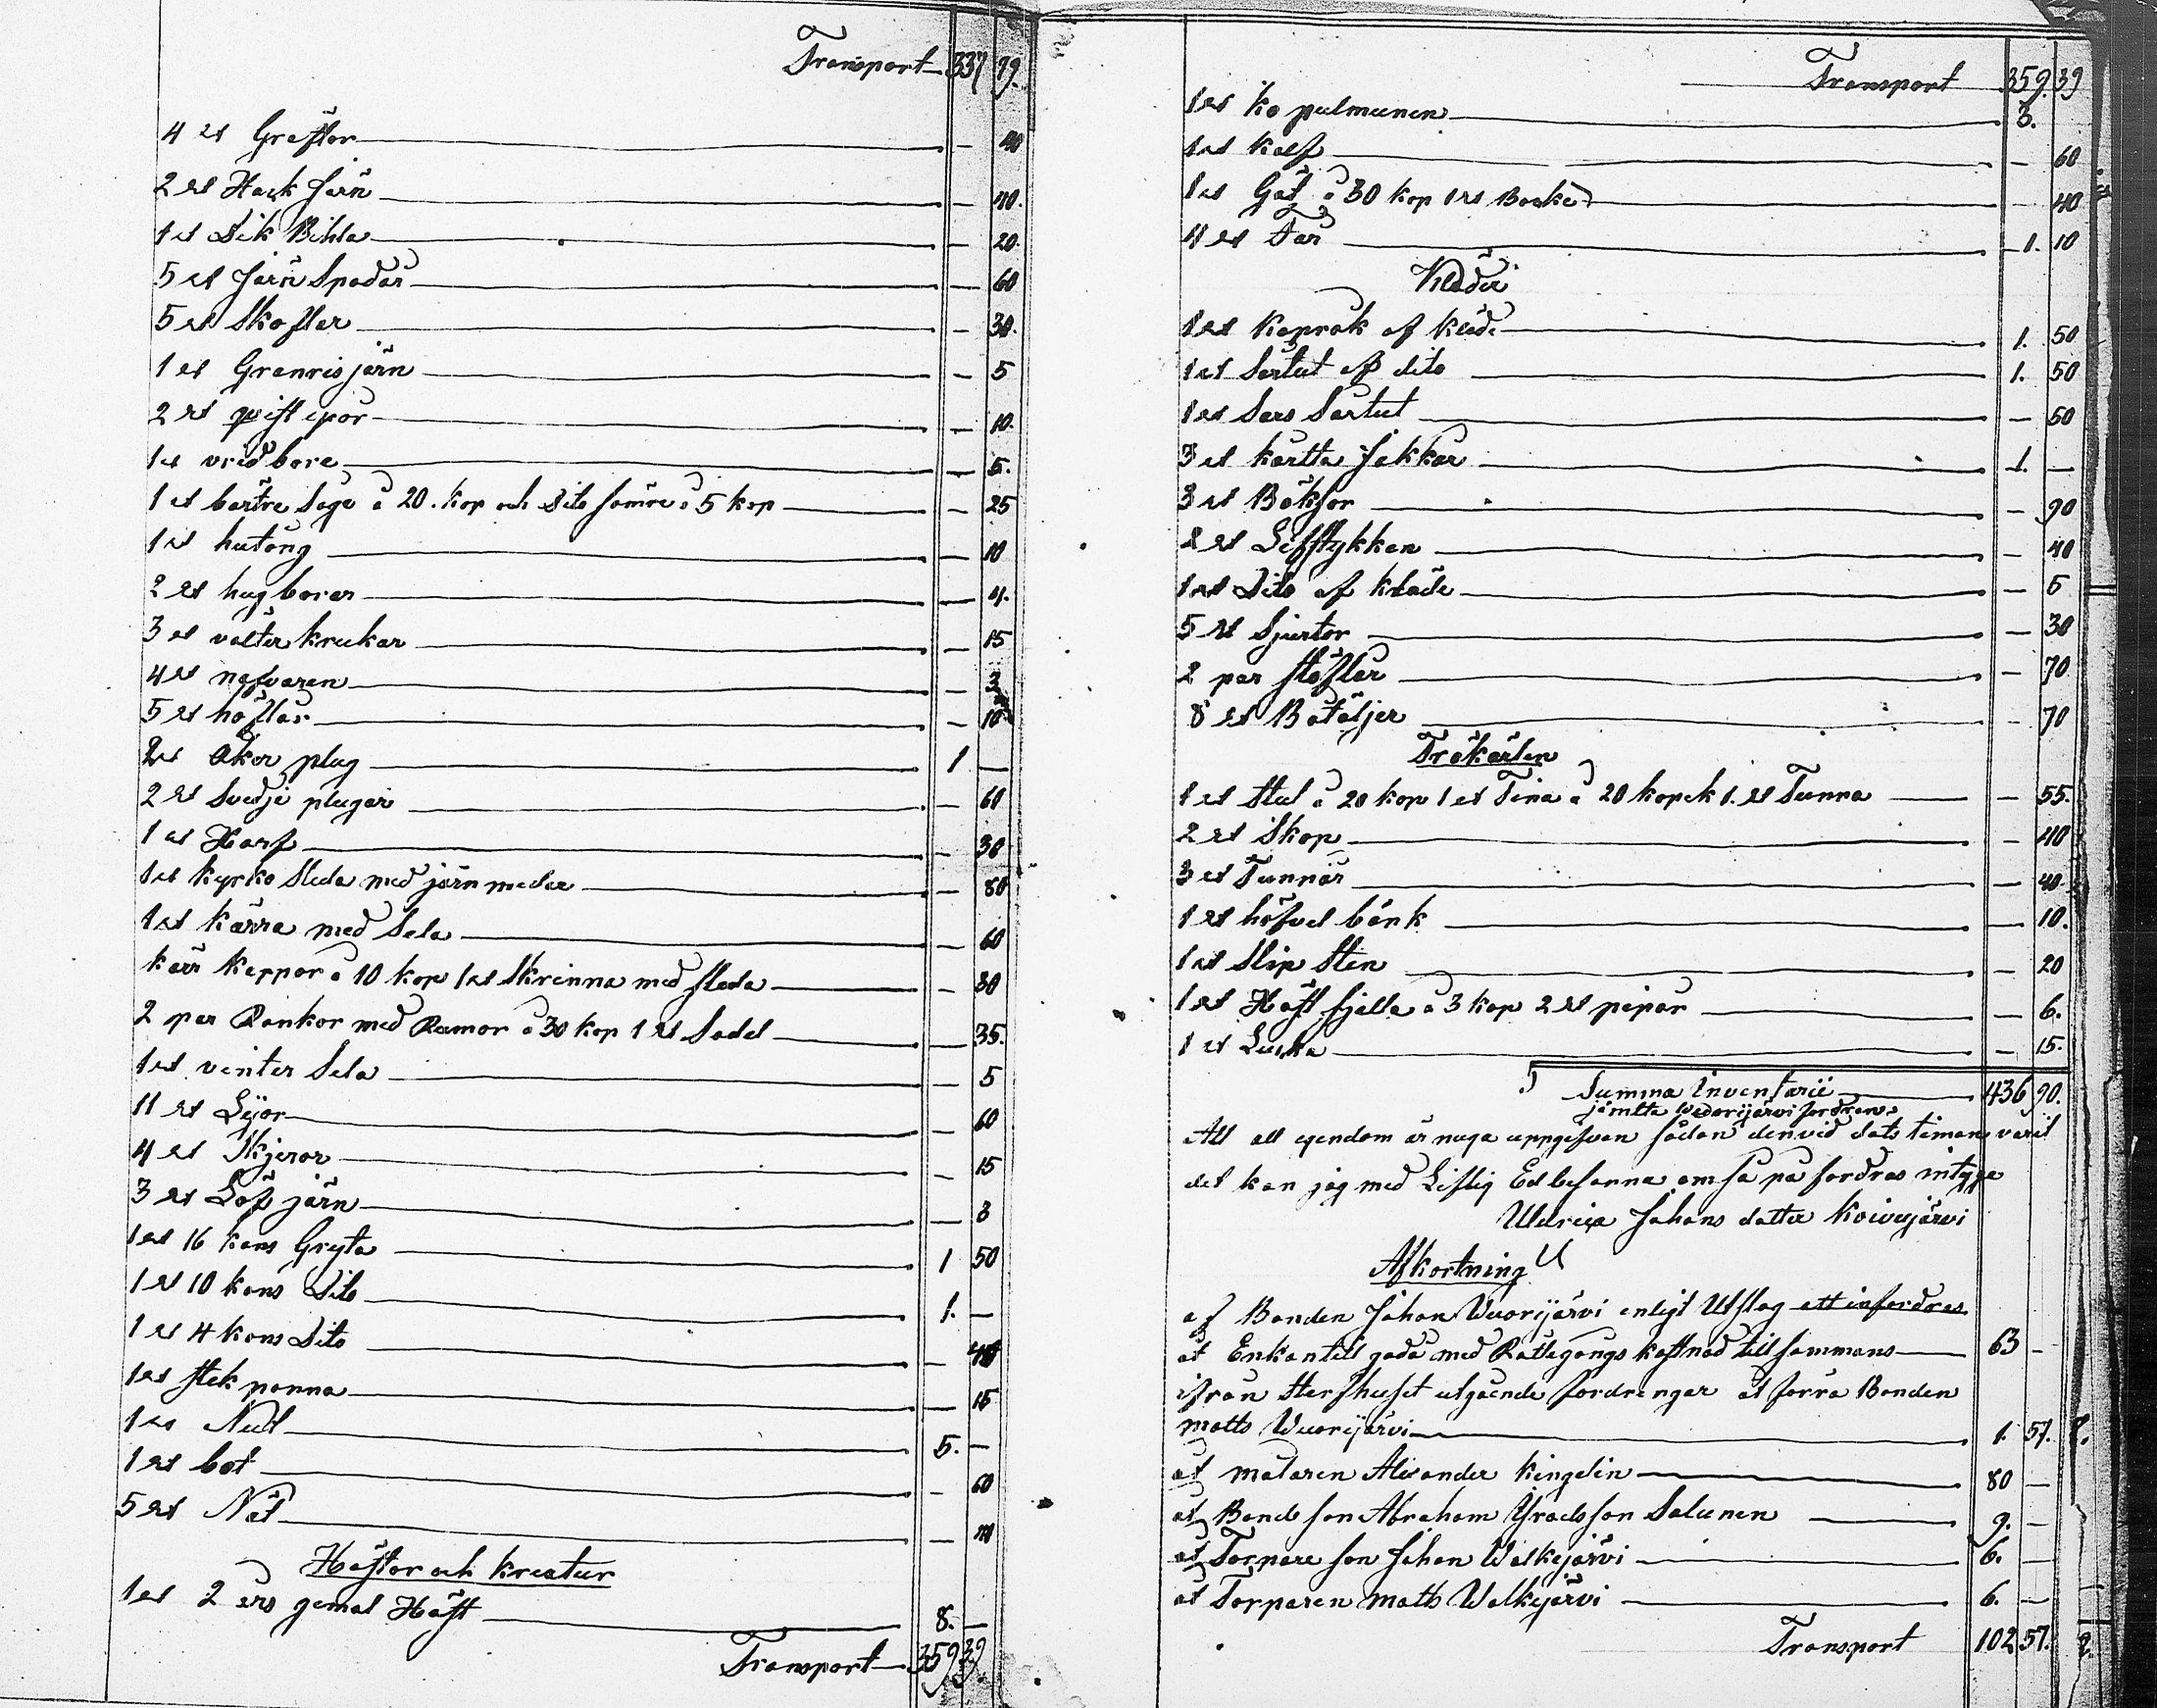 Transport 337 79.
4 st Greftor — 40
2 st Hack järn — 40.
1 st Dik Bihla — 20.
5 st Järn Spadar — 60
5 st Skoflar — 30.
1 st Granris järn — 5
2 st — 10.
1 st vrid bore — 5.
1 st bärtre Sage a 20. kop och Dito sämre a 5 kop — 25
1 st hutong — 10
2 st hug borar — 4.
3 st valter krukar — 15
4 st nafvaren — 3
5 st höflar — 10
2 st Åker plug 1 —
2 st Svedje plugar — 60
1 st Harf — 30
1 st kyrko Släda med järn medar — 80
1 st kärra med Sela — 60
kärr kappor a 10 kop 1 st Skrinna med släda — 30
2 par Rankor med Ramor a 30 kop 1 st Sadel — 35.
1 st vinter Sela — 5
11 st Lijor — 60
4 st Skjeror — 15
3 st Löf järn — 3
1 st 16 kans Gryta 1 50
1 st 10 kans Dito 1. —
1 st 4 kans Dito — 40
1 st stek panna — 15
1 st Not 5. —
1 st bot — 60
5 st Nät —
Hästor och kreatur
1 st 2 års gamal Häst 8. —
Transport 359 39.
Transport 359. 39
1 st ko palmunen 3.
1 st kalf — 60
1 st Gät a 30 kop 1 st Bocke — 40
4 st Får 1. 10
Kläder
1 st kapråk af kläde 1. 50
1 st Sartut af dito 1. 50
1 st Sars Sartut — 50
3 st kortta Jakkar 1. —
3 st Böksor — 90
2 st Lifstykken — 40
1 st Dito af kläde — 5
5 st Sjurtor — 30
2 par stöflar — 70
8 st Botäljer — 70
Träkärlen
1 st Stul a 20 kop 1 st Tina a 20 kopek 1. st Tunna — 55.
2 st Skop — 40
3 st Tunnar — 40.
1 st höfvel bänk — 10.
1 st Slip Sten — 20
1 st Häst sjella a 3 kop 2 st pipor — 6.
1 st — 15.
Summa Inventarii 436 90.
jämtte Wuorijärvi fordran
Att all egendom är noga uppgifvan sådan den vid döds timan varit
det kan jag med Liflig Ed besanna om så på fordras intyga
Ulrica Johans datter Koivujärvi
Afkortning
af Bonden Johan Wuorijärvi enligt Utslag att infordras
åt Enkan till goda med Rättegångs kostnad till sammans 63 —
ifrån Sterfhuset utgående fordringar åt förra Bonden
matts Wuorijärvi 1. 57.
åt målaren Alexander Kingelin 80 —
åt Bonde son Abraham Salunen 9. —
åt Torpare son Johan Walkejärvi 6. —
åt Torparen matts Walkejärvi 6. —
Transport 102 57. 2.